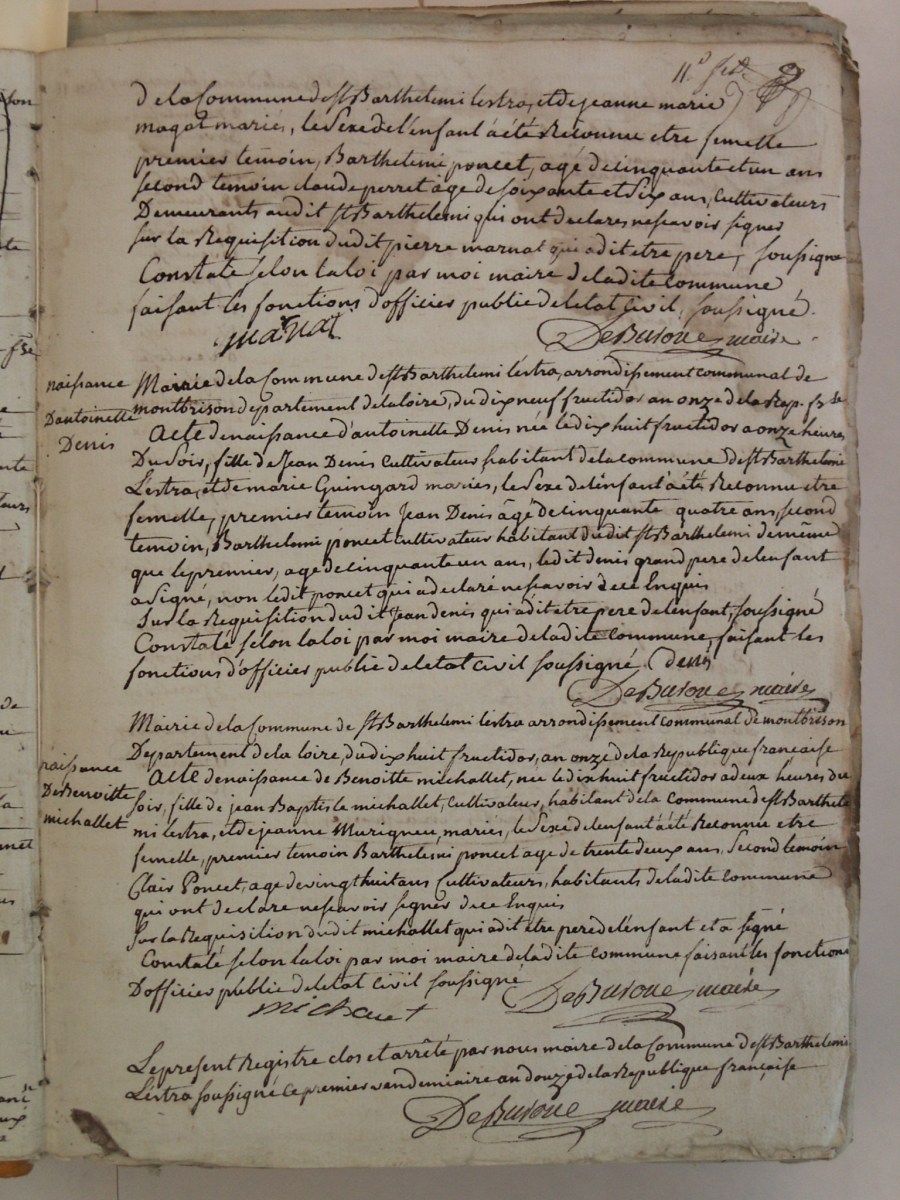 11.e
de la Commune de st Barthelemi lestra, et de jeanne marie
magat mariés, le Sexe de l'enfant à été Reconnu etre femelle
premier temoin, Barthelemi poncet, agé de cinquante et un ans
second temoin claude perret agé de soixante et Six ans, Cultivateurs
Demeurants audit st Barthelemi qui ont declarés ne scavoir signer
sur la Requisition dudit pierre marnat qui a dit etre pere, soussigné
Constaté selon la loi par moi maire de la dite commune
faisant les fonctions d'officier public de letat Civil, soussigné.
marnat
DeBusoue maire
naissance
D'antoinette
Denis
Mairie de la Commune de st Barthelemi lestra, arrondissement communal de
montbrison departement de la loire, du dix neuf fructidor an onze de la Rep. fse
Acte de naissance d'antoinette Denis née le dix huit fructidor a onze heures
Du Soir, fille de Jean Denis Cultivateur habitant de la commune de st Barthelemi
Lestra, et de marie Guingard mariés, le Sexe de l'enfant à été Reconnu etre
femelle, premier temoin Jean Denis âgé de cinquante quatre ans, second
temoin, Barthelemi poncet cultivateur habitant dudit st Barthelemi de même
que le premier, agé de cinquante un ans, ledit denis grand pere de l'enfant
a Signé, non ledit poncet qui a declaré ne scavoir de ce Enquis
Sur la Requisition dudit Jean denis qui a dit etre pere de l'enfant, soussigné
Constaté selon la loi par moi maire de la dite commune, faisant les
fonctions d'officier public de letat civil soussigné. Denis
DeBusoue maire
Mairie de la Commune de st Barthelemi lestra arrondissement communal de montbrison
naissance
De Benoitte
michallet
Departement de la loire, du dix huit fructidor, an onze de la Republique française
Acte de naissance de Benoitte michallet, née le dix huit fructidor a deux heures du
Soir, fille de jean Baptiste michallet, Cultivateur, habitant de la commune de st Barthele
mi lestra, et de jeanne Murigneu, mariés, le Sexe de l'enfant à été Reconnu etre
femelle, premier temoin Barthelemi poncet agé de trente deux ans, Second temoin
Clair Poncet, agé de vingt huit ans Cultivateurs, habitants de la dite commune
qui ont declaré ne scavoir signer de ce Enquis
Sur la Requisition dudit michallet qui a dit être pere de l'enfant et a signé
Constaté selon la loi par moi maire de la dite commune faisant les fonctions
D'officier public de letat civil soussigné
DeBusoue maire
michalet
Le present Registre clos et arrêté par nous maire de la Commune de st Barthelemi
Lestra soussigné ce premier vendemiaire an douze de la Republique française
DeBusoue maire